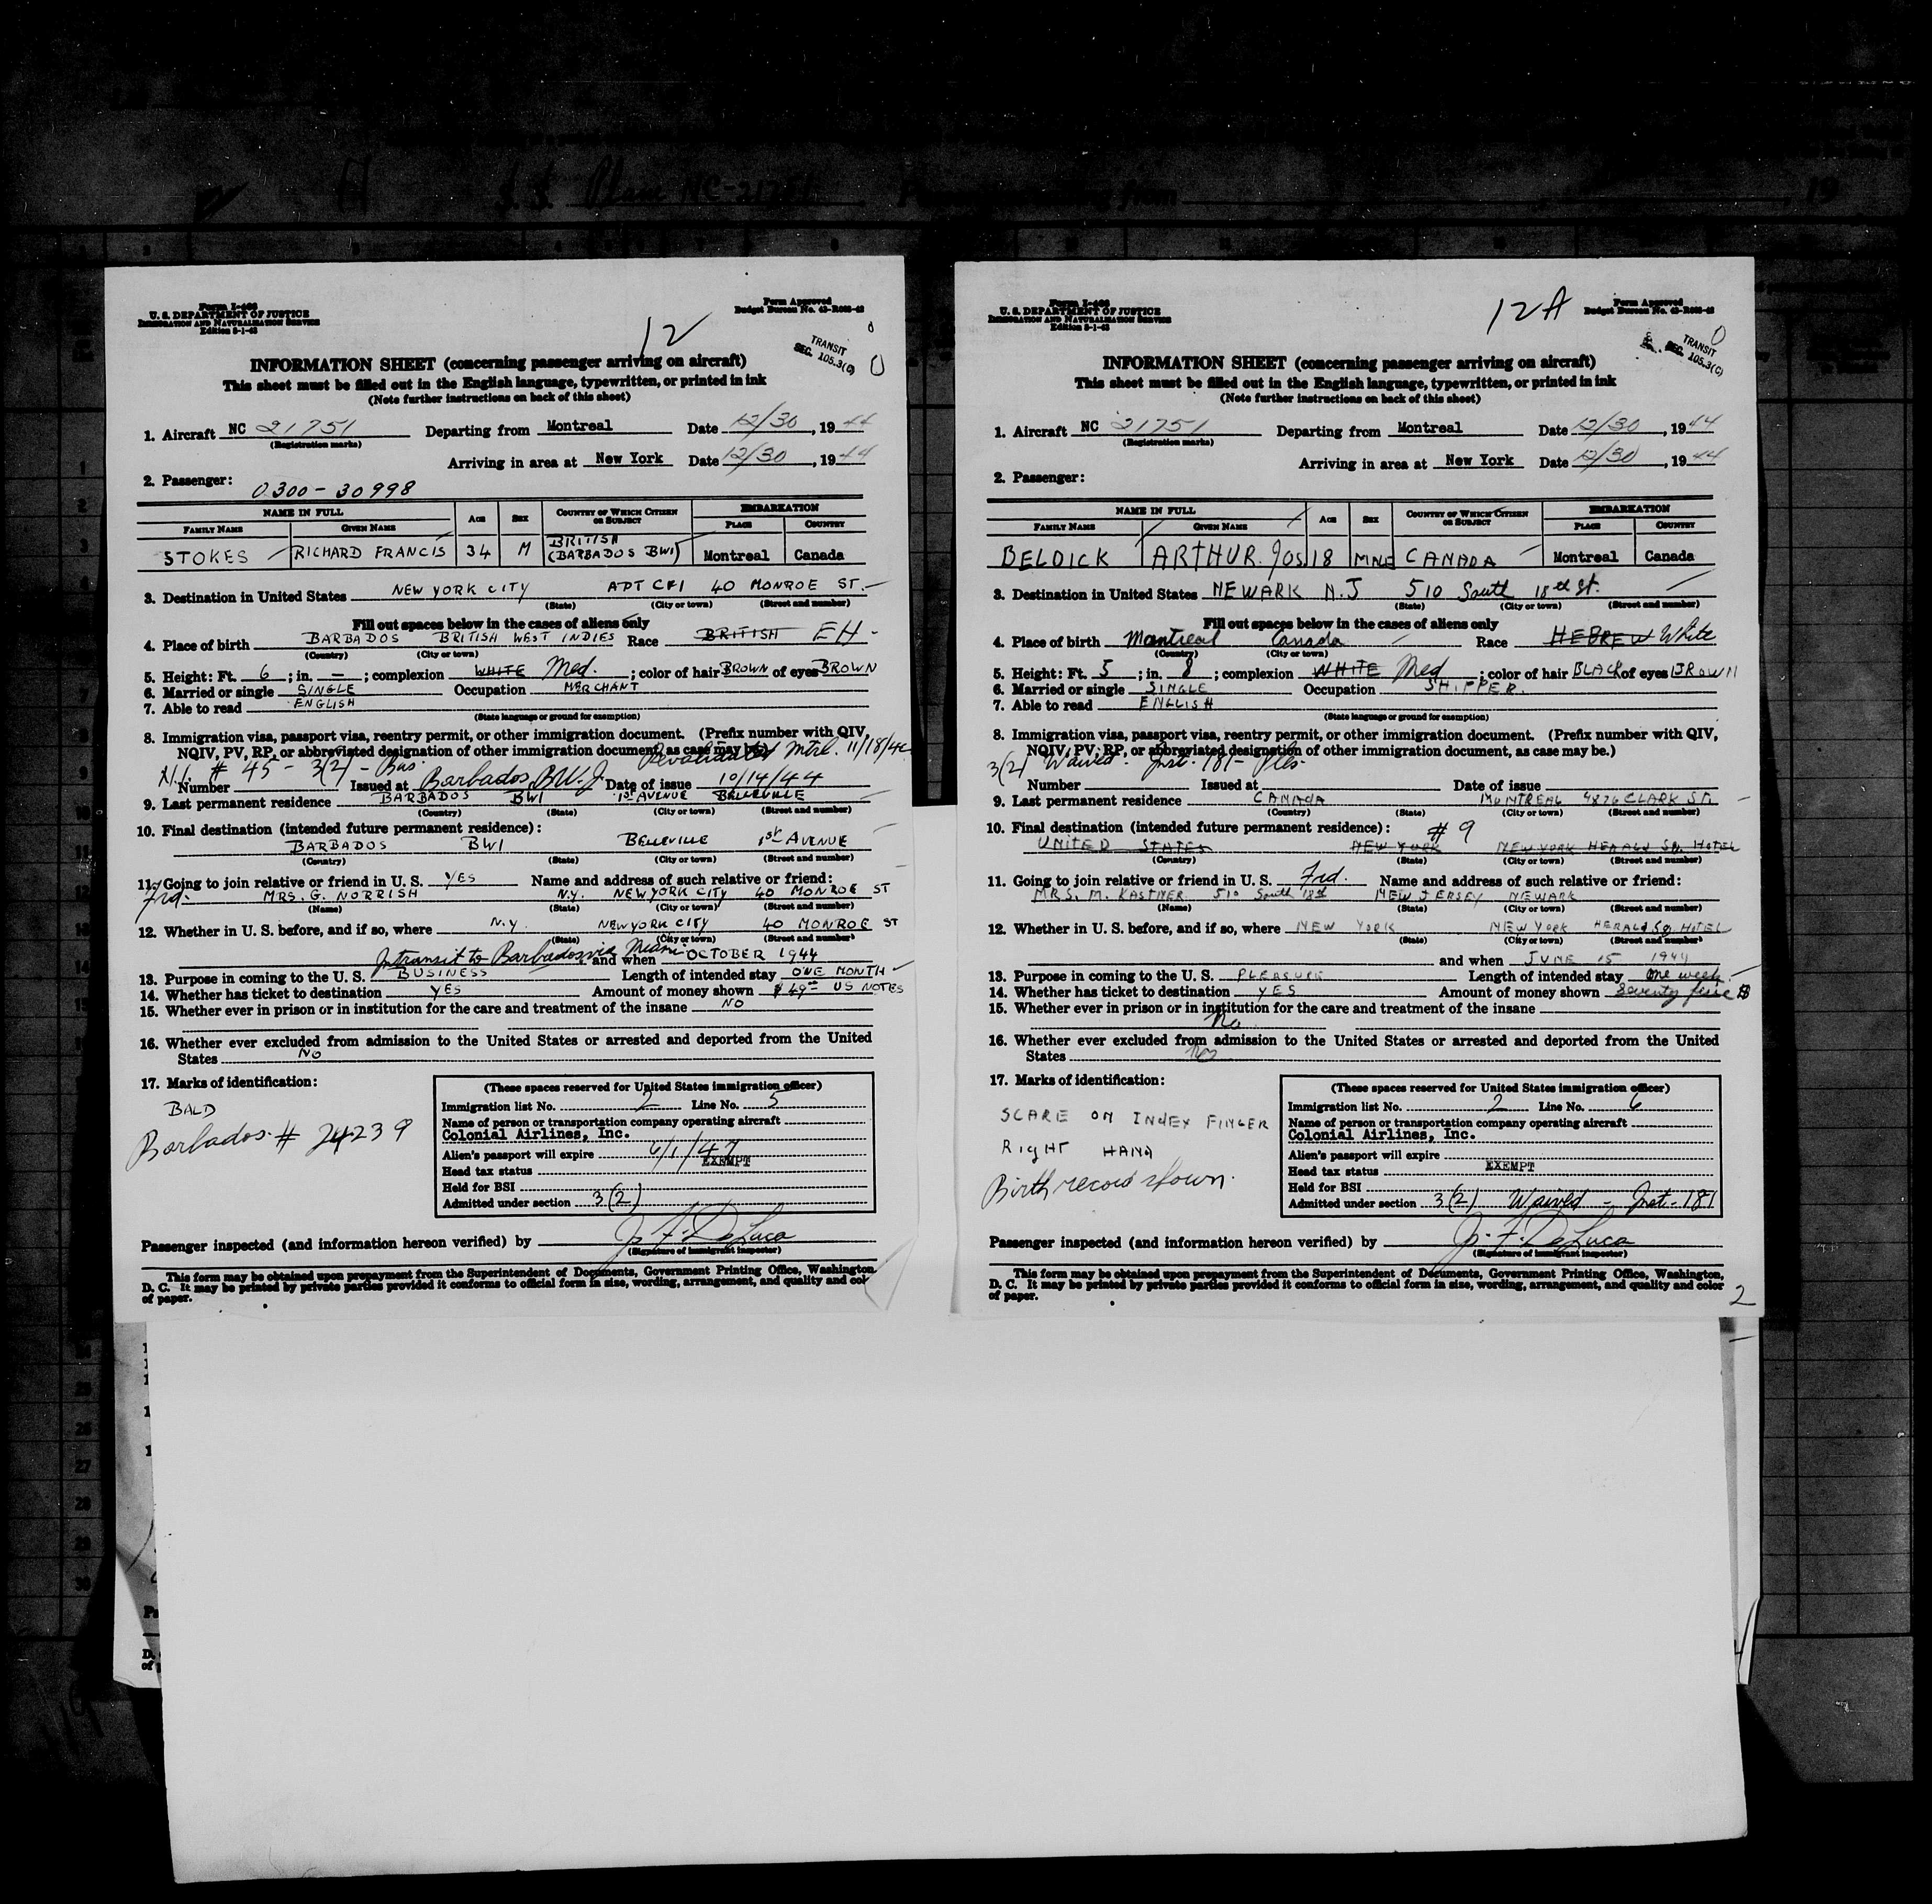 S.S. Plane NC-21751
19
Form I-466
U. S. DEPARTMENT OF JUSTICE
IMMIGRATION AND NATURALIZATION SERVICE
Edition 3-1-43
12
Form Approved
Budget Bureau No. 43-R065-43
TRANSIT
SEC. 105.3(C)
0
INFORMATION SHEET (concerning passenger arriving on aircraft)
This sheet must be filled out in the English language, typewritten, or printed in ink
(Note further instructions on back of this sheet)
1. Aircraft NC 21751 Departing from Montreal Date 12/30, 1944
(Registration marks)
Arriving in area at New York Date 12/30, 1944
2. Passenger:
0300-30998
NAME IN FULL AGE SEX COUNTRY OF WHICH CITIZEN OR SUBJECT EMBARKATION
FAMILY NAME GIVEN NAME PLACE COUNTRY
STOKES RICHARD FRANCIS 34 M BRITISH (BARBADOS BWI) Montreal Canada
3. Destination in United States NEW YORK CITY APT CF1 40 MONROE ST.
(State) (City or town) (Street and number)
Fill out spaces below in the cases of aliens only
4. Place of birth BARBADOS BRITISH WEST INDIES Race BRITISH EH-
(Country) (City or town)
5. Height: Ft. 6 ; in. - ; complexion WHITE Med. ; color of hair BROWN of eyes BROWN
6. Married or single SINGLE Occupation MERCHANT
7. Able to read ENGLISH
(State language or ground for exemption)
8. Immigration visa, passport visa, reentry permit, or other immigration document. (Prefix number with QIV,
NQIV, PV, RP, or abbreviated designation of other immigration document, as case may be.) Mtrl. 11/18/44
# 45 - 3(2) - Bus.
Number Issued at Barbados, B.W.I. Date of issue 10/14/44
9. Last permanent residence BARBADOS BWI 1st AVENUE BELLEVILLE
(Country) (State) (City or town) (Street and number)
10. Final destination (intended future permanent residence):
BARBADOS BWI BELLEVILLE 1st AVENUE
(Country) (State) (City or town) (Street and number)
11. Going to join relative or friend in U. S. YES Name and address of such relative or friend:
frd. MRS. G. NORRISH N.Y. NEW YORK CITY 40 MONROE ST
(Name) (State) (City or town) (Street and number)
12. Whether in U. S. before, and if so, where N.Y. NEW YORK CITY 40 MONROE ST
(State) (City or town) (Street and number)
In transit to Barbados via Miami and when OCTOBER 1944
13. Purpose in coming to the U. S. BUSINESS Length of intended stay ONE MONTH
14. Whether has ticket to destination YES Amount of money shown $ 49 US NOTES
15. Whether ever in prison or in institution for the care and treatment of the insane NO
16. Whether ever excluded from admission to the United States or arrested and deported from the United
States NO
17. Marks of identification:
BALD
Barbados # 24239
(These spaces reserved for United States immigration officer)
Immigration list No. 2 Line No. 5
Name of person or transportation company operating aircraft
Colonial Airlines, Inc.
Alien's passport will expire 6/1/47
Head tax status EXEMPT
Held for BSI
Admitted under section 3(2)
Passenger inspected (and information hereon verified) by J. F. DeLuca
(Signature of immigrant inspector)
This form may be obtained upon prepayment from the Superintendent of Documents, Government Printing Office, Washington,
D. C. It may be printed by private parties provided it conforms to official form in size, wording, arrangement, and quality and col
of paper.
Form I-466
U. S. DEPARTMENT OF JUSTICE
IMMIGRATION AND NATURALIZATION SERVICE
Edition 3-1-43
12A
Form Approved
Budget Bureau No. 43-R065-43
TRANSIT
SEC. 105.3(C)
0
INFORMATION SHEET (concerning passenger arriving on aircraft)
This sheet must be filled out in the English language, typewritten, or printed in ink
(Note further instructions on back of this sheet)
1. Aircraft NC 21751 Departing from Montreal Date 12/30, 1944
(Registration marks)
Arriving in area at New York Date 12/30, 1944
2. Passenger:
NAME IN FULL AGE SEX COUNTRY OF WHICH CITIZEN OR SUBJECT EMBARKATION
FAMILY NAME GIVEN NAME PLACE COUNTRY
BELDICK ARTHUR. JOS 18 MNE CANADA Montreal Canada
3. Destination in United States NEWARK N.J 510 South 18th St.
(State) (City or town) (Street and number)
Fill out spaces below in the cases of aliens only
4. Place of birth Montreal Canada Race HEBREW White
(Country) (City or town)
5. Height: Ft. 5 ; in. 8 ; complexion WHITE Med ; color of hair BLACK of eyes BROWN
6. Married or single SINGLE Occupation SHIPPER.
7. Able to read ENGLISH
(State language or ground for exemption)
8. Immigration visa, passport visa, reentry permit, or other immigration document. (Prefix number with QIV,
NQIV, PV, RP, or abbreviated designation of other immigration document, as case may be.)
3(2) Waived. Inst. 181- Ples.
Number Issued at Date of issue
9. Last permanent residence CANADA MONTREAL 4876 CLARK ST.
(Country) (State) (City or town) (Street and number)
10. Final destination (intended future permanent residence): # 9
UNITED STATES NEW YORK NEW YORK HERALD SQ. HOTEL
(Country) (State) (City or town) (Street and number)
11. Going to join relative or friend in U. S. Frd. Name and address of such relative or friend:
MRS. M. KASTNER 510 South 18th NEW JERSEY NEWARK
(Name) (State) (City or town) (Street and number)
12. Whether in U. S. before, and if so, where NEW YORK NEW YORK HERALD SQ HOTEL
(State) (City or town) (Street and number)
and when JUNE 15 1944
13. Purpose in coming to the U. S. PLEASURE Length of intended stay One week
14. Whether has ticket to destination YES Amount of money shown Seventy five $
15. Whether ever in prison or in institution for the care and treatment of the insane
No
16. Whether ever excluded from admission to the United States or arrested and deported from the United
States No
17. Marks of identification:
SCARE ON INDEX FINGER
RIGHT HAND
Birth record shown.
(These spaces reserved for United States immigration officer)
Immigration list No. 2 Line No. 6
Name of person or transportation company operating aircraft
Colonial Airlines, Inc.
Alien's passport will expire
Head tax status EXEMPT
Held for BSI
Admitted under section 3(2) Waived - Inst. - 181
Passenger inspected (and information hereon verified) by J. F. DeLuca
(Signature of immigrant inspector)
This form may be obtained upon prepayment from the Superintendent of Documents, Government Printing Office, Washington,
D. C. It may be printed by private parties provided it conforms to official form in size, wording, arrangement, and quality and color
of paper.
2